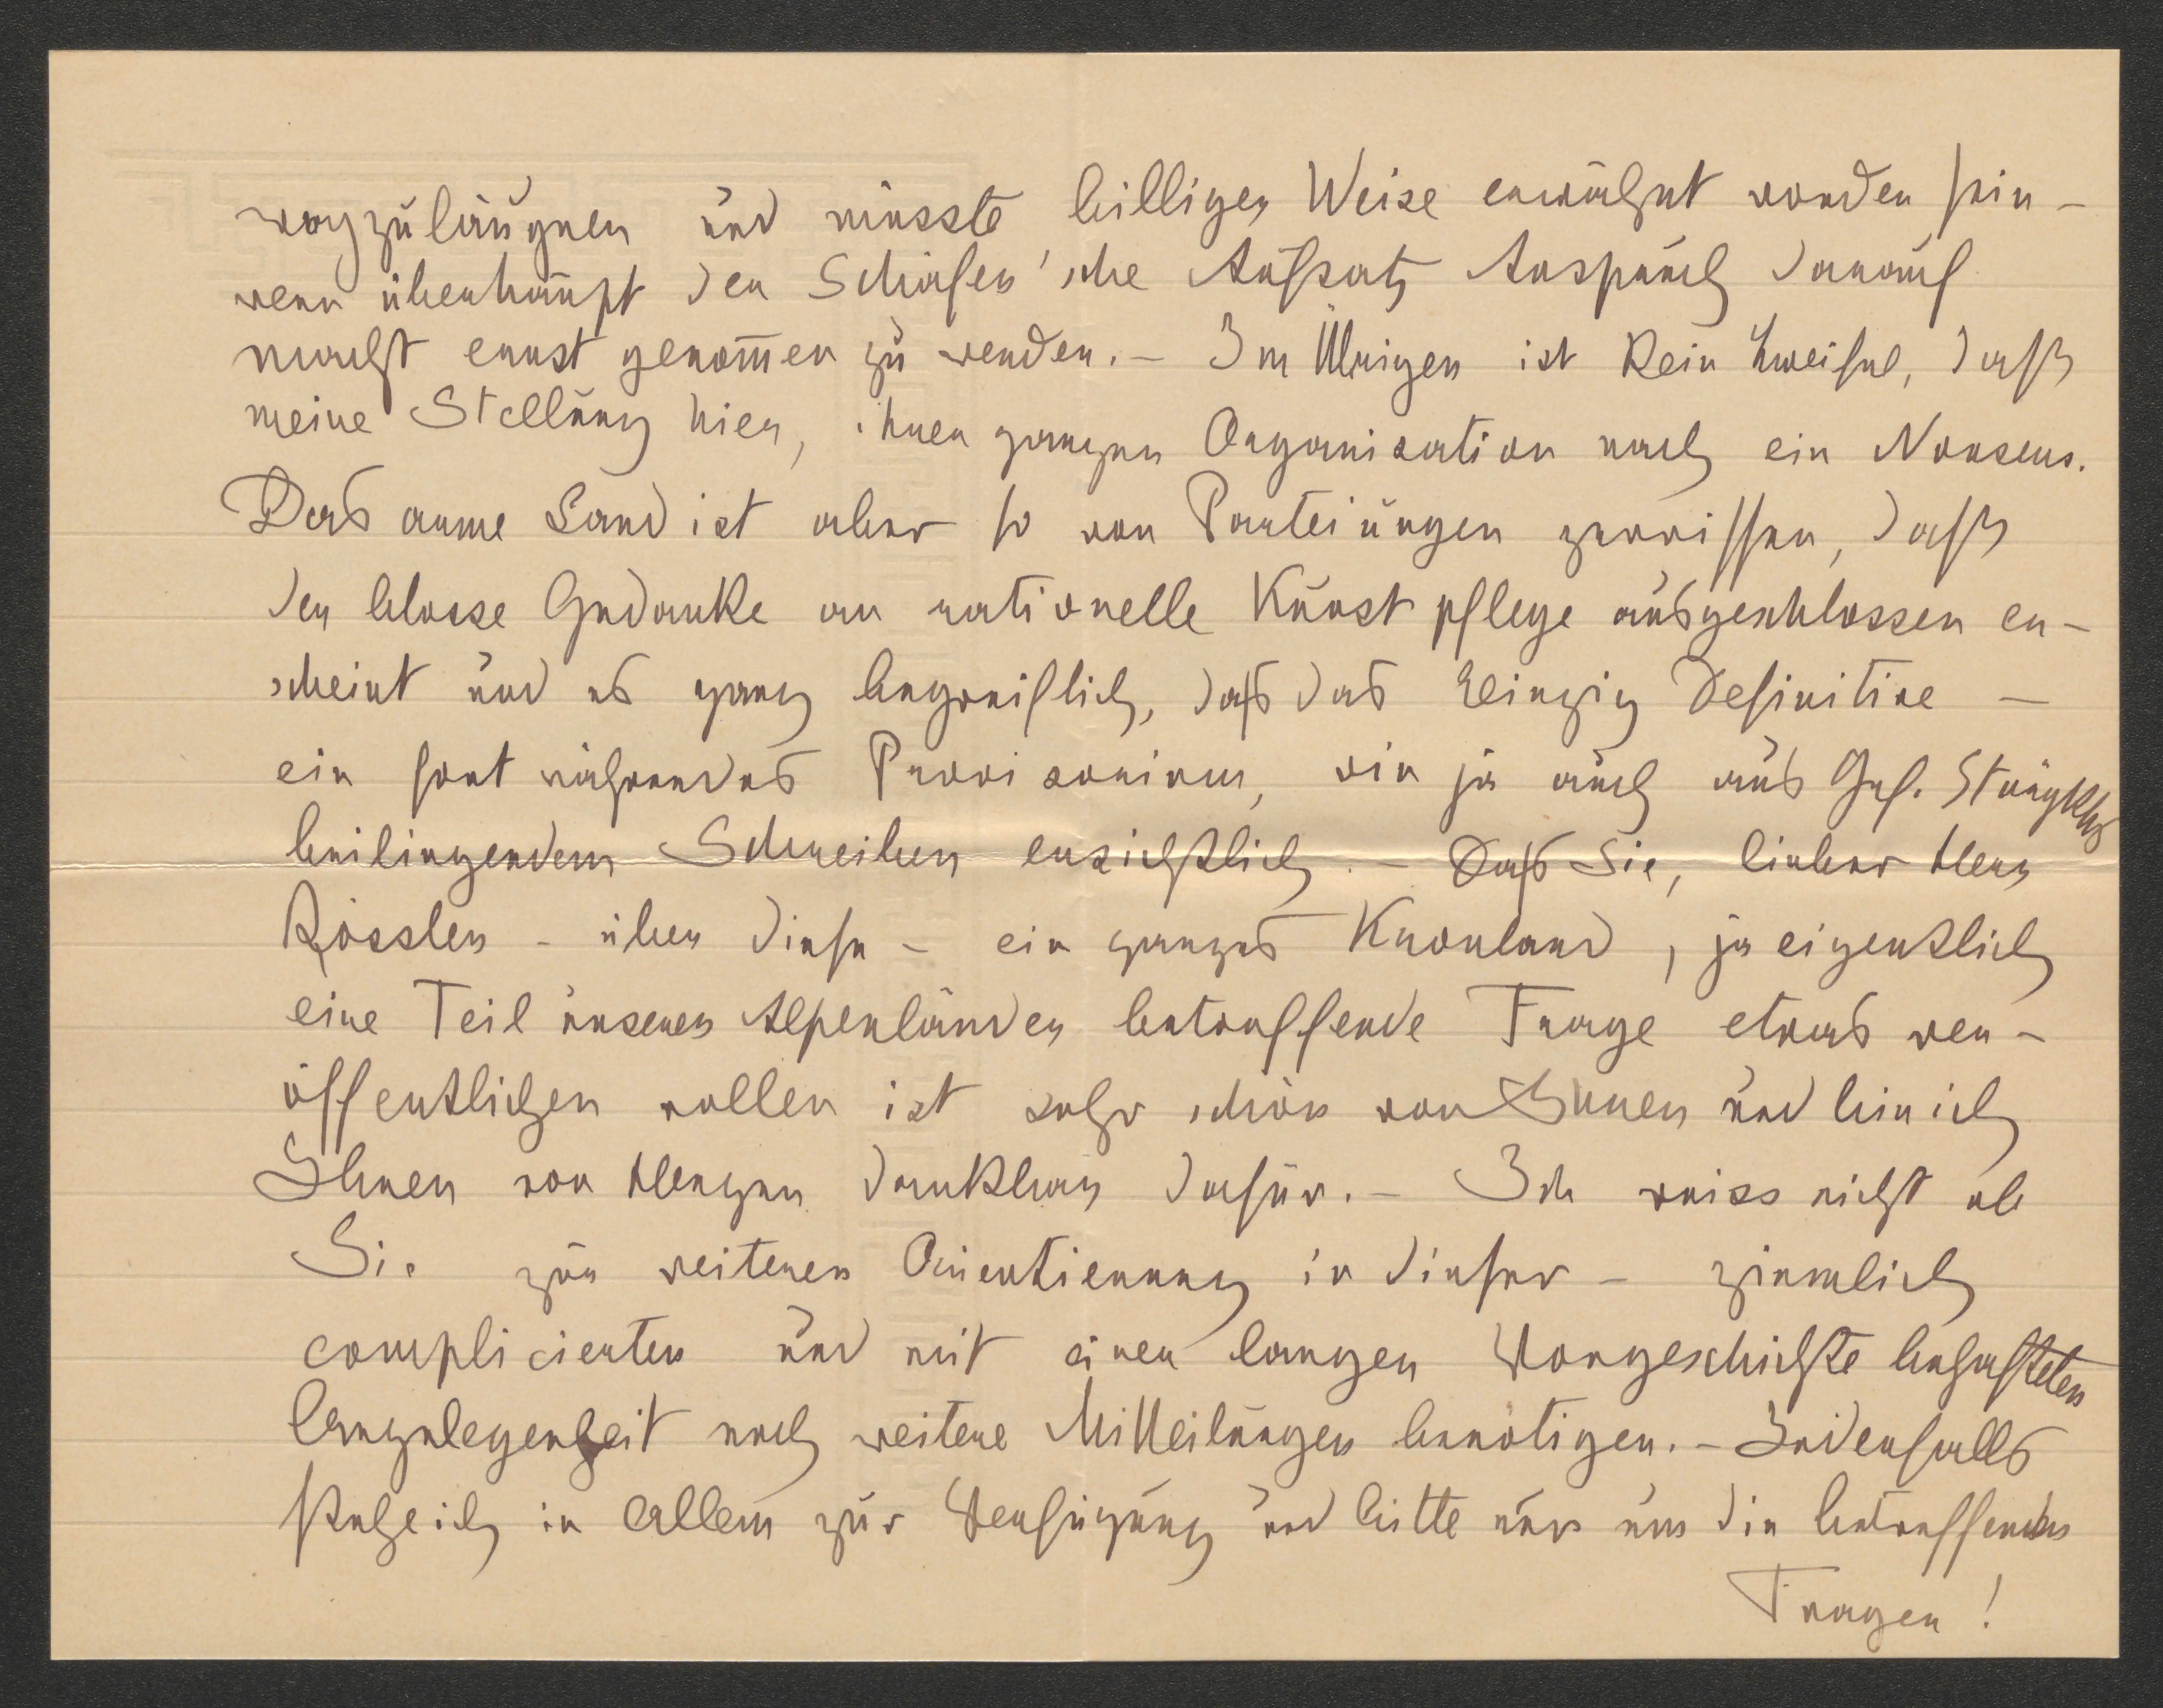 wegzuläugnen und müsste billiger Weise erwähnt worden sein –
wenn überhaupt der Schäfer'sche Aufsatz Anspruch darauf
macht ernst genommen zu werden. – Im Übrigen ist kein Zweifel, daß
meine Stellung hier, ihrer ganzen Organisation nach ein Nonsens.
Das arme Land ist aber so von Parteiungen zerrissen, daß
der blosse Gedanke an rationelle Kunstpflege ausgeschlossen er-
scheint und es ganz begreiflich, daß das Einzig Definitive –
ein fort währendes Provisorium, wie ja auch aus Grf. Stürgkhs
beiliegendem Schreiben ersichtlich. – Daß Sie, lieber Herr
Rössler – über diese – ein ganzes Kronland, ja eigentlich
eine Teil unserer Alpenländer betreffende Frage etwas ver-
öffentlichen wollen ist sehr schön von Ihnen und bin ich
Ihnen von Herzen dankbar dafür. – Ich weiss nicht ob
Sie zur weiteren Orientierung in dieser – ziemlich
complicierten und mit einer langen Vorgeschichte behafteten
Angelegenheit noch weitere Mitteilungen benötigen. – Jedenfalls
stehe ich in Allem zur Verfügung und bitte nur um die betreffenden
Fragen!